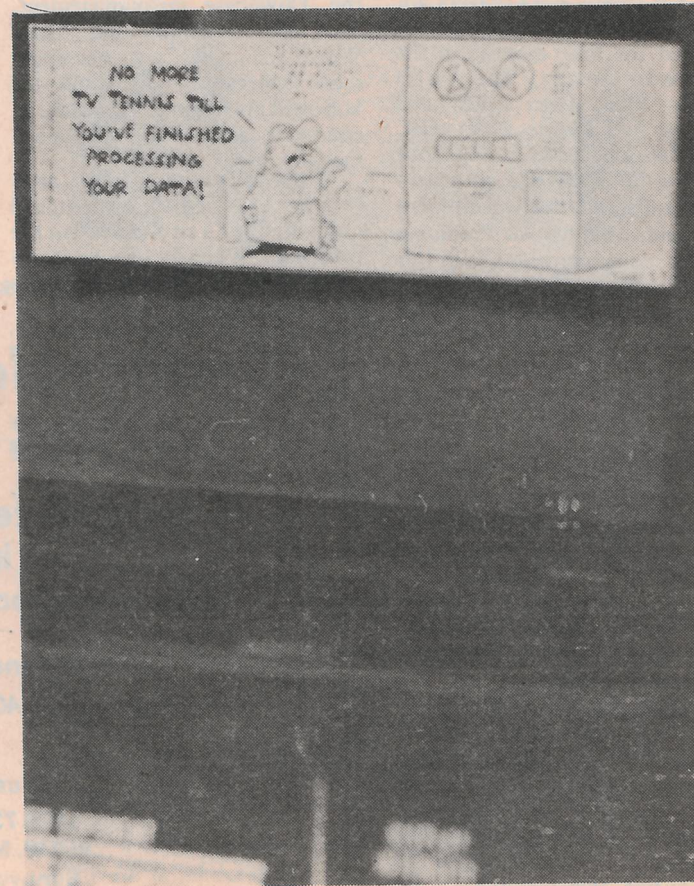 NO MORE
TV TENNIS TILL
YOU'VE FINISHED
PROCESSING
YOUR DATA!